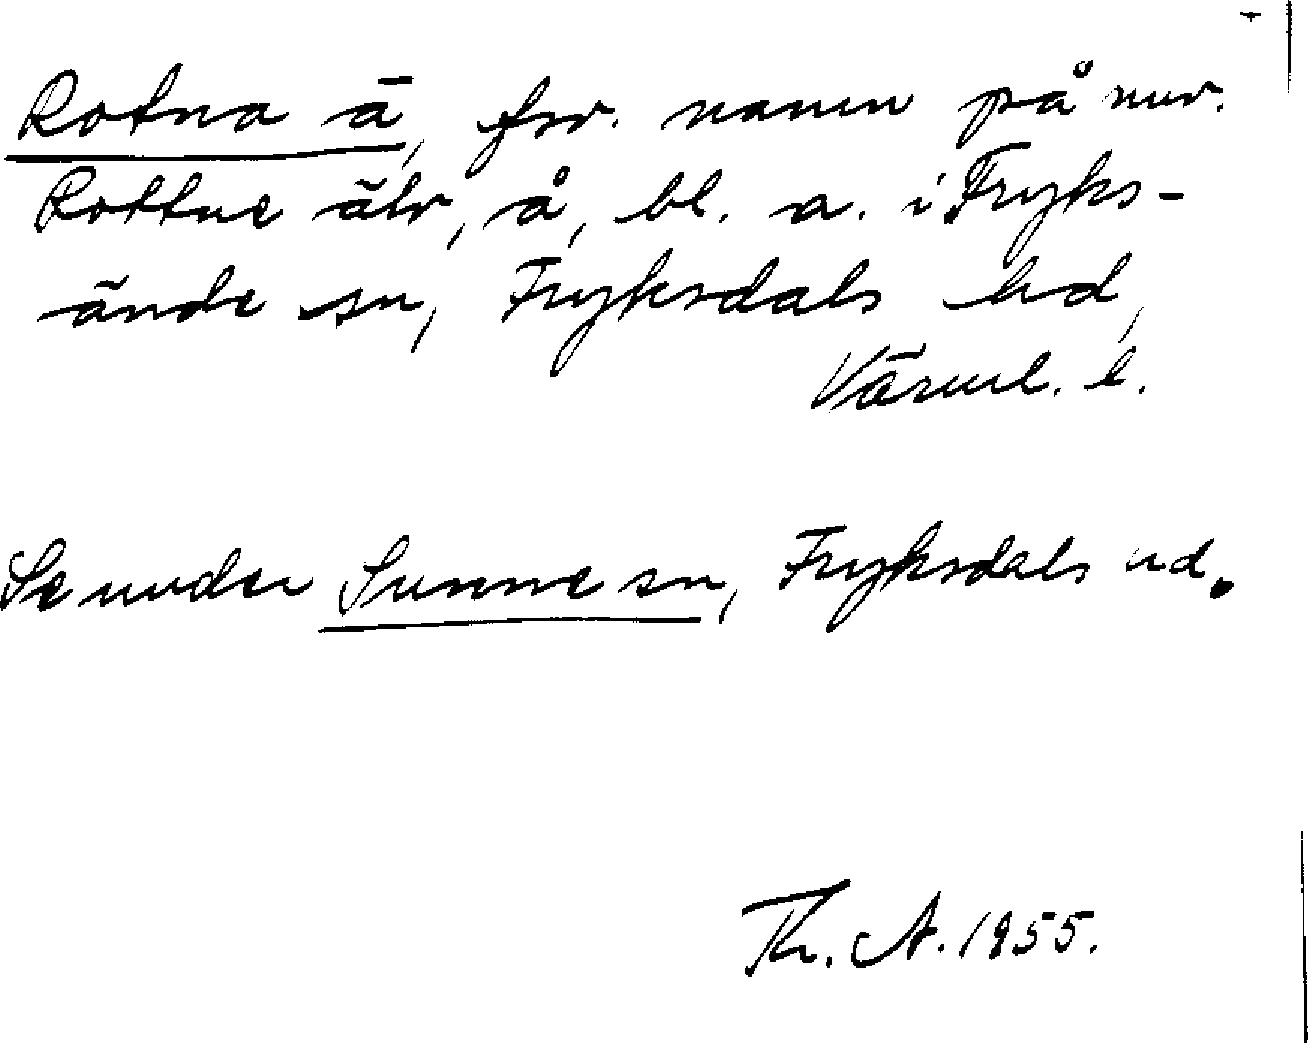 Rotna ä, förr. namn på nuv.
Rottne älv, å, bl. a. i Fryks-
ände sn, Fryksdals hd,
Värml. l.
Se under Sunne sn, Fryksdals hd.
Th. A. 1955.